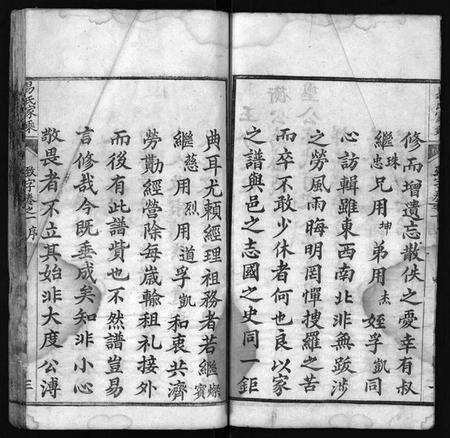 修而增遺忘散佚之憂幸有叔
繼珠忠兄用坤弟用杰姪孚凱同
心訪輯雖東西南北非無跋涉
之勞風雨晦明罔憚搜羅之苦
而卒不敢少休者何也良以家
之譜與邑之志國之史同一鉅
典耳尤賴經理祖務者若繼燦賓
繼慈用烈用道孚凱和衷共濟
勞勷經營除每歲輸租禮接外
而後有此譜貲也不然譜豈易
言修哉今既垂成矣知非小心
敬畏者不立其始非大度公溥
易氏家乘
敦字卷之一 序
三